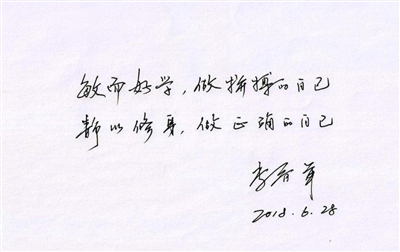 敏而好学，做拼搏的自己
静以修身，做正确的自己
李春草
2018.6.28